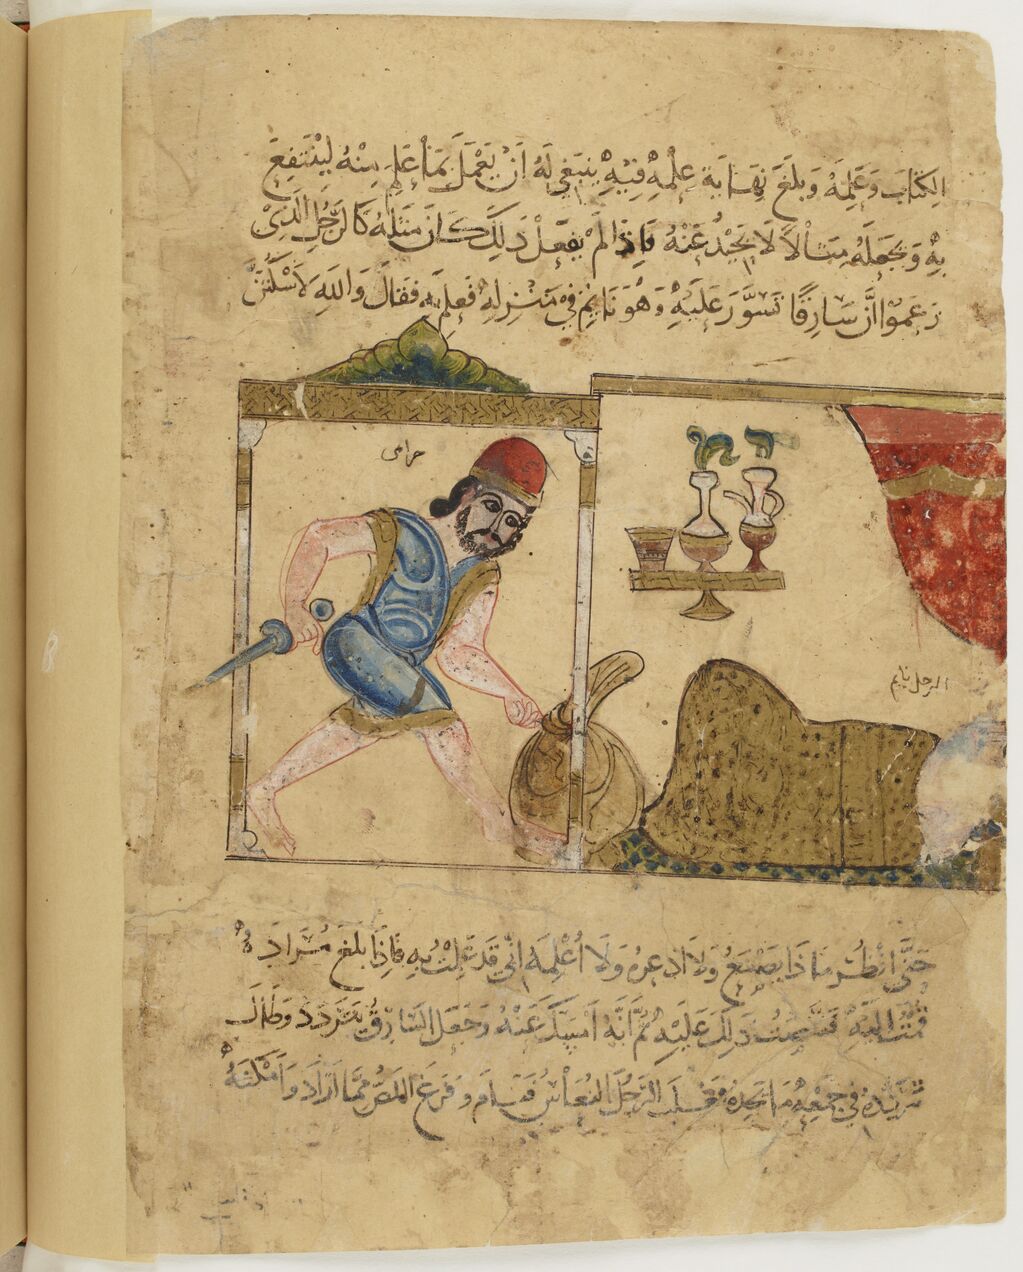 الكتاب وعلمه وبلغ نهاية علمه فيه ينبغي له ان يعمل بما علم منه لينتفع
به ويجعله مثالا لا يحيد عنه فاذا لم يفعل ذلك كان مثله كالرجل الذى
زعموا ان سارقا تسور عليه وهو نايم في منزله فعلم به فقال والله لاسكتن
حرامى
الرجل نايم
حتى انظر ماذا يصنع ولا اذعره ولا أعلمه اني قد علمت به فاذا بلغ مراده
قمت اليه فنغصت ذلك عليه ثم انه امسك عنه وجعل السارق يتردد وطال
تردده في جمعه ما يجده فغلب الرجل النعاس فنام وفرغ اللص مما اراد وامكنه